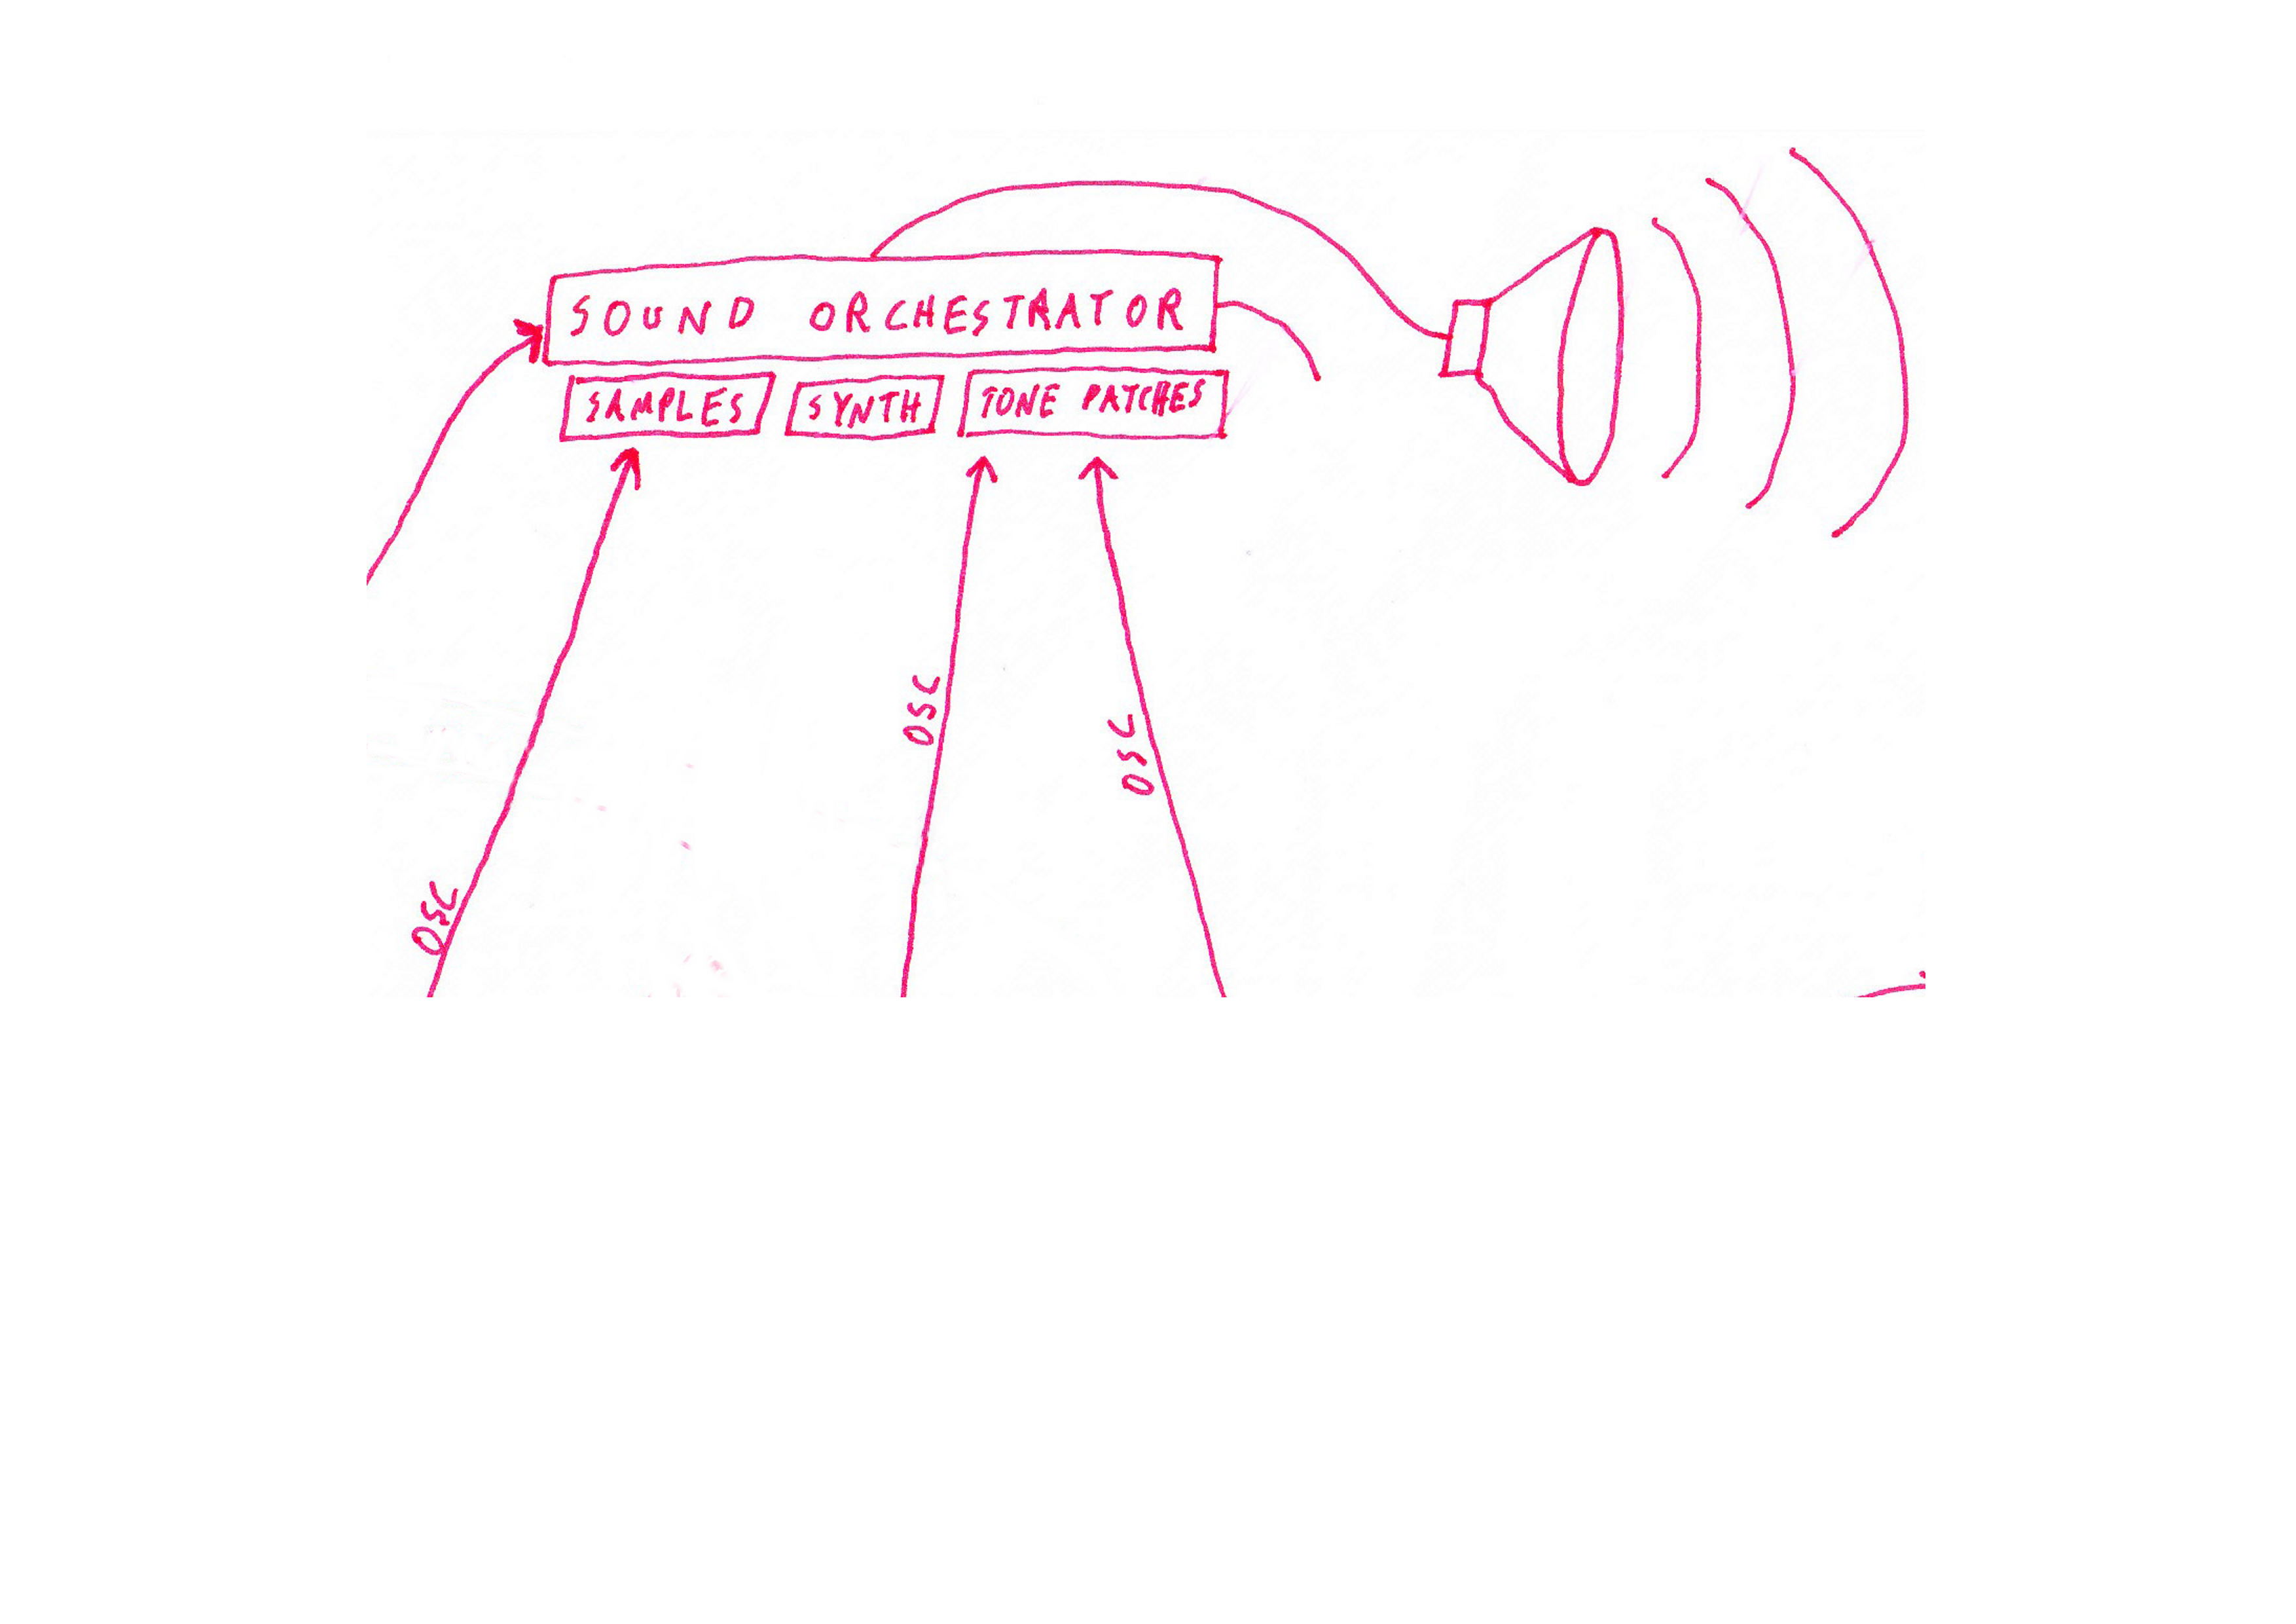 SOUND ORCHESTRATOR
SAMPLES
SYNTH
TONE PATCHES
OSC
OSC
OSC